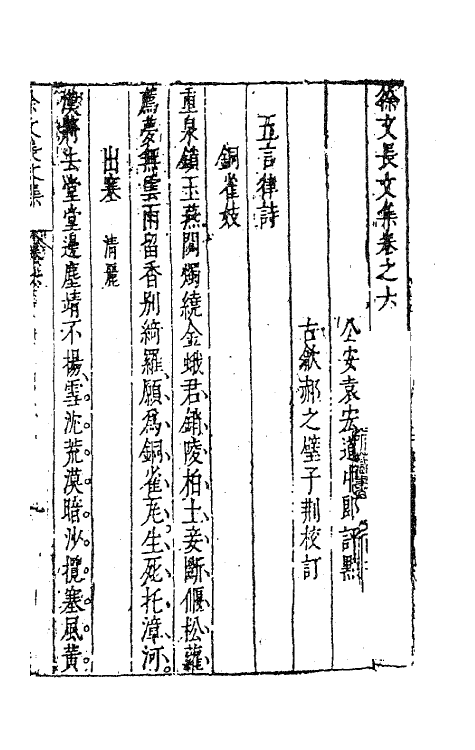 徐文長文集卷之六
公安袁宏道中郎評點
古歙郝之璧子荆校訂
五言律詩
銅雀妓
重泉鎖玉燕閟燭繞金蛾君銷陵柏土妾斷偃松蘿
薦夢無雲雨留香別綺羅願為銅雀瓦生死托漳河
出塞 清麗
漢將去堂堂邊塵靖不揚雪沈荒漠暗沙攪塞風黄
徐文長文集